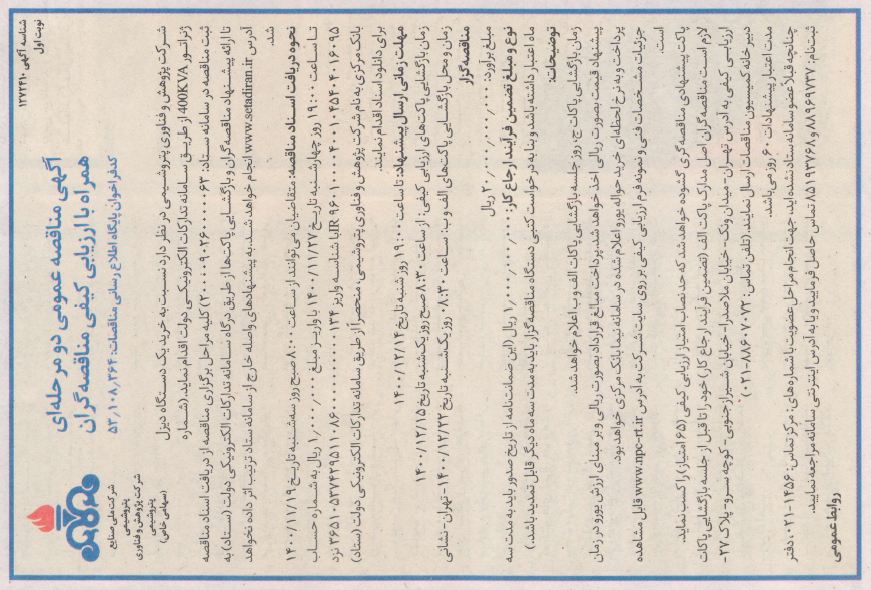 شناسه آگهی ۱۲۷۲۴۱۰
نوبت اول
آگهی مناقصه عمومی دو مرحله‌ای
همراه با ارزیابی کیفی مناقصه‌گران
کدفراخوان پایگاه اطلاع رسانی مناقصات: ۵۳,۱۰۸,۳۶۴
شرکت ملی صنایع
پتروشیمی
شرکت پژوهش و فناوری
پتروشیمی
(سهامی خاص)
شرکت پژوهش و فناوری پتروشیمی در نظر دارد نسبت به خرید یک دستگاه دیزل
ژنراتور 400KVA از طریق سامانه تدارکات الکترونیکی دولت اقدام نماید. (شماره
ثبت مناقصه در سامانه ستاد: ۲۰۰۰۰۹۰۲۶۰۰۰۰۰۶۳) کلیه مراحل برگزاری مناقصه از دریافت اسناد مناقصه
تا ارائه پیشنهاد مناقصه‌گران و بازگشایی پاکت‌ها از طریق درگاه سامانه تدارکات الکترونیکی دولت (ستاد) به
آدرس www.setadiran.ir انجام خواهد شد. به پیشنهادهای واصله خارج از سامانه ستاد ترتیب اثر داده نخواهد
شد.
نحوه دریافت اسناد مناقصه: متقاضیان می‌توانند از ساعت ۸:۰۰ صبح روز سه‌شنبه تاریخ ۱۴۰۰/۱۱/۱۹
تا ساعت ۱۹:۰۰ روز چهارشنبه تاریخ ۱۴۰۰/۱۱/۲۷ با واریز مبلغ ۱,۰۰۰,۰۰۰ ریال به شماره حساب
IR ۹۶۰۱۰۰۰۰۴۰۰۱۰۴۵۴۰۴۰۱۶۰۹۵ با شناسه واریز ۳۶۵۱۰۵۳۷۴۲۹۵۱۱۰۸۶۰۰۰۰۰۰۰۰۰۰۰۱۳۴ نزد
بانک مرکزی به نام شرکت پژوهش و فناوری پتروشیمی، منحصراً از طریق سامانه تدارکات الکترونیکی دولت (ستاد)
برای دانلود اسناد اقدام نمایند.
مهلت زمانی ارسال پیشنهاد: تا ساعت ۱۹:۰۰ روز شنبه تاریخ ۱۴۰۰/۱۲/۱۴
زمان بازگشایی پاکت‌های ارزیابی کیفی: از ساعت ۸:۳۰ صبح روز یک‌شنبه تاریخ ۱۴۰۰/۱۲/۱۵
زمان و محل بازگشایی پاکت‌های الف و ب: ساعت ۰۸:۳۰ روز یک‌شنبه تاریخ ۱۴۰۰/۱۲/۲۲-تهران-نشانی
مناقصه‌گزار
مبلغ برآورد: ۲۰,۰۰۰,۰۰۰,۰۰۰ ریال
نوع و مبلغ تضمین فرآیند ارجاع کار: ۱,۰۰۰,۰۰۰,۰۰۰ ریال (این ضمانت‌نامه از تاریخ صدور باید به مدت سه
ماه اعتبار داشته باشد و بنا به درخواست کتبی دستگاه مناقصه‌گزار باید به مدت سه ماه دیگر قابل تمدید باشد.)
توضیحات:
زمان بازگشایی پاکات ج، روز جلسه بازگشایی پاکات الف و ب اعلام خواهد شد.
پیشنهاد قیمت بصورت ریالی اخذ خواهد شد. پرداخت مبالغ قرارداد بصورت ریالی و بر مبنای ارزش یورو در زمان
پرداخت و به نرخ لحظه‌ای خرید حواله یورو اعلام شده در سامانه نیما بانک مرکزی خواهد بود.
جزئیات مشخصات فنی و نمونه فرم ارزیابی کیفی بر روی سایت شرکت به آدرس www.npc-rt.ir قابل مشاهده
است.
پاکت پیشنهادی مناقصه‌گری گشوده خواهد شد که حد نصاب امتیاز ارزیابی کیفی (۶۵ امتیاز) را کسب نماید.
لازم است مناقصه‌گران اصل مدارک پاکت الف (تضمین فرآیند ارجاع کار) خود را تا قبل از جلسه بازگشایی پاکات
ارزیابی کیفی به آدرس تهران- میدان ونک- خیابان ملاصدرا- خیابان شیراز جنوبی- کوچه نسرو- پلاک ۲۷-
دبیرخانه کمیسیون مناقصات ارسال نمایند. (تلفن تماس: ۸۸۶۰۷۰۷۲-۰۲۱)
مدت اعتبار پیشنهادات ۶۰ روز می‌باشد.
چنانچه قبلاً عضو سامانه ستاد نشده‌اید، جهت انجام مراحل عضویت با شماره‌های: مرکز تماس: ۱۴۵۶-۰۲۱، دفتر
ثبت‌نام: ۸۸۹۶۹۷۳۷ و ۸۵۱۹۳۷۶۸ تماس حاصل فرمایید و یا به آدرس اینترنتی سامانه مراجعه نمایید.
روابط عمومی